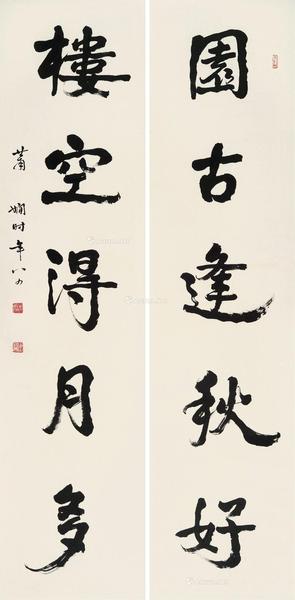 園古逢秋好
樓空得月多
蕭嫻時年八四